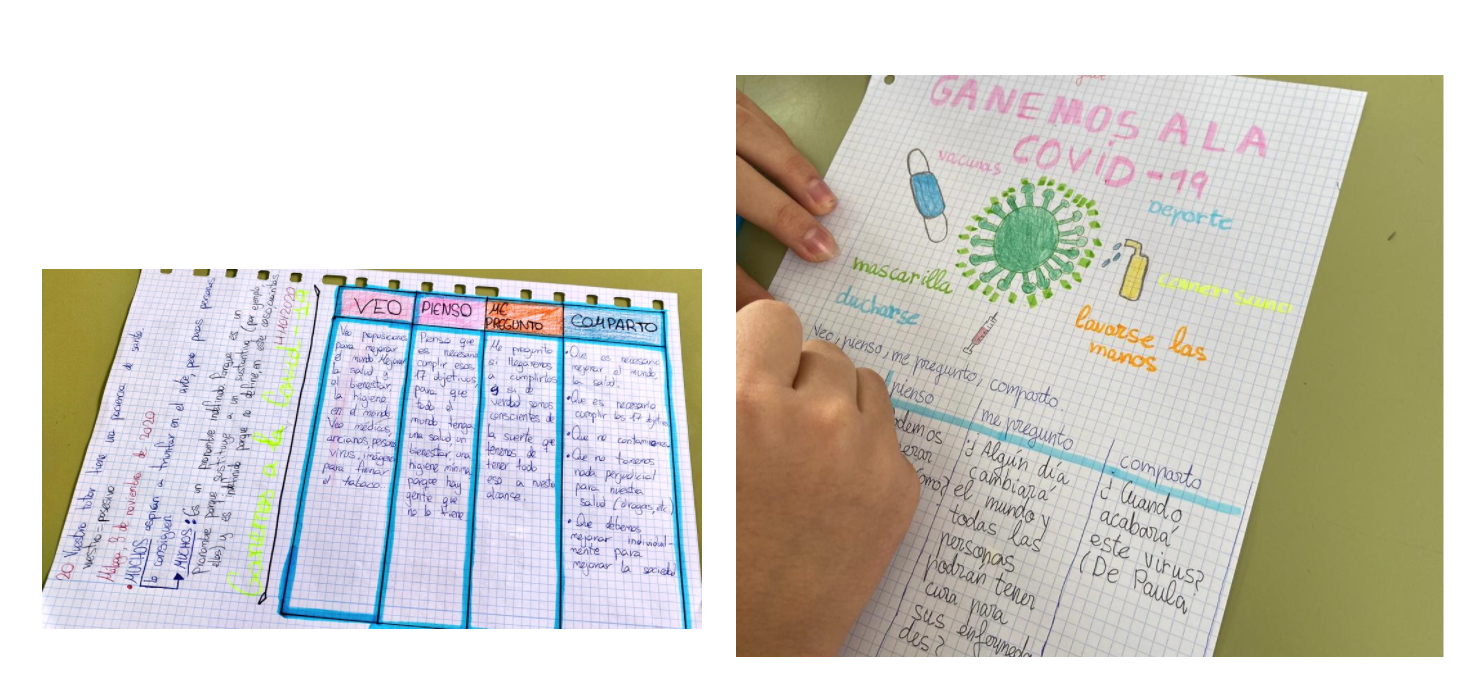 20 Vuestro tutor tiene una paciencia de santo.
vuestro = posesivo
Málaga 9 de noviembre de 2020
• MUCHOS aspiran a triunfar en el arte, pero pocas personas
lo consiguen.
→ MUCHOS: Es un pronombre indefinido. Porque es un
Pronombre porque sustituye a un sustantivo (por ejemplo,
ellos) y es indefinido porque no define en este caso cuántos
4 NOV 2020
Ganemos a la Covid-19
VEO
Veo
para mejorar
el mundo. Mejorar
la salud o
el bienestar
la higiene
en el mundo
Veo médicos,
ancianos, pesas
virus, imágenes
para frenar
el tabaco.
PIENSO
Pienso que
es necesario
cumplir esos
17 objetivos,
para que
todo el
mundo tenga
una salud, un
bienestar, una
higiene mínima,
porque hay
gente que
no lo tiene
ME
PREGUNTO
Me pregunto
si llegaremos
a cumplirlos
y si de
verdad somos
conscientes de
la suerte que
tenemos de
tener todo
eso a nuestro
alcance.
COMPARTO
• Que es necesario
mejorar el mundo,
la salud.
• Que es necesario
cumplir los 17 objetivos
• Que no contaminemos
• Que no tomemos
nada perjudicial
para nuestra
salud (drogas, etc)
• Que debemos
mejorar individual-
mente para
mejorar la sociedad
GANEMOS A LA
COVID-19
vacunas
Deporte
mascarilla
comer sano
ducharse
lavarse las
manos
Veo, pienso, me pregunto, comparto.
pienso
me pregunto
¿Algún día
cambiará
el mundo y
todas las
personas
podran tener
cura para
sus enfermeda
des?
comparto
¿Cuando
acabará
este virus?
(De Paula